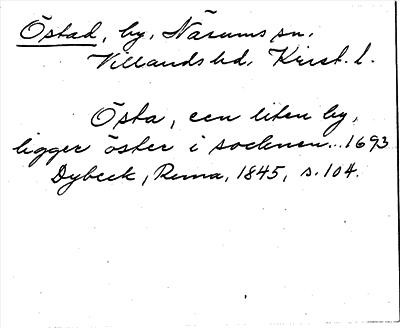 Östad, by, Näsums sn.
Villands hd. Krist. l.
Östa, een liten by,
ligger öster i sochnen... 1693
Dybeck, Runa, 1845, s. 104.